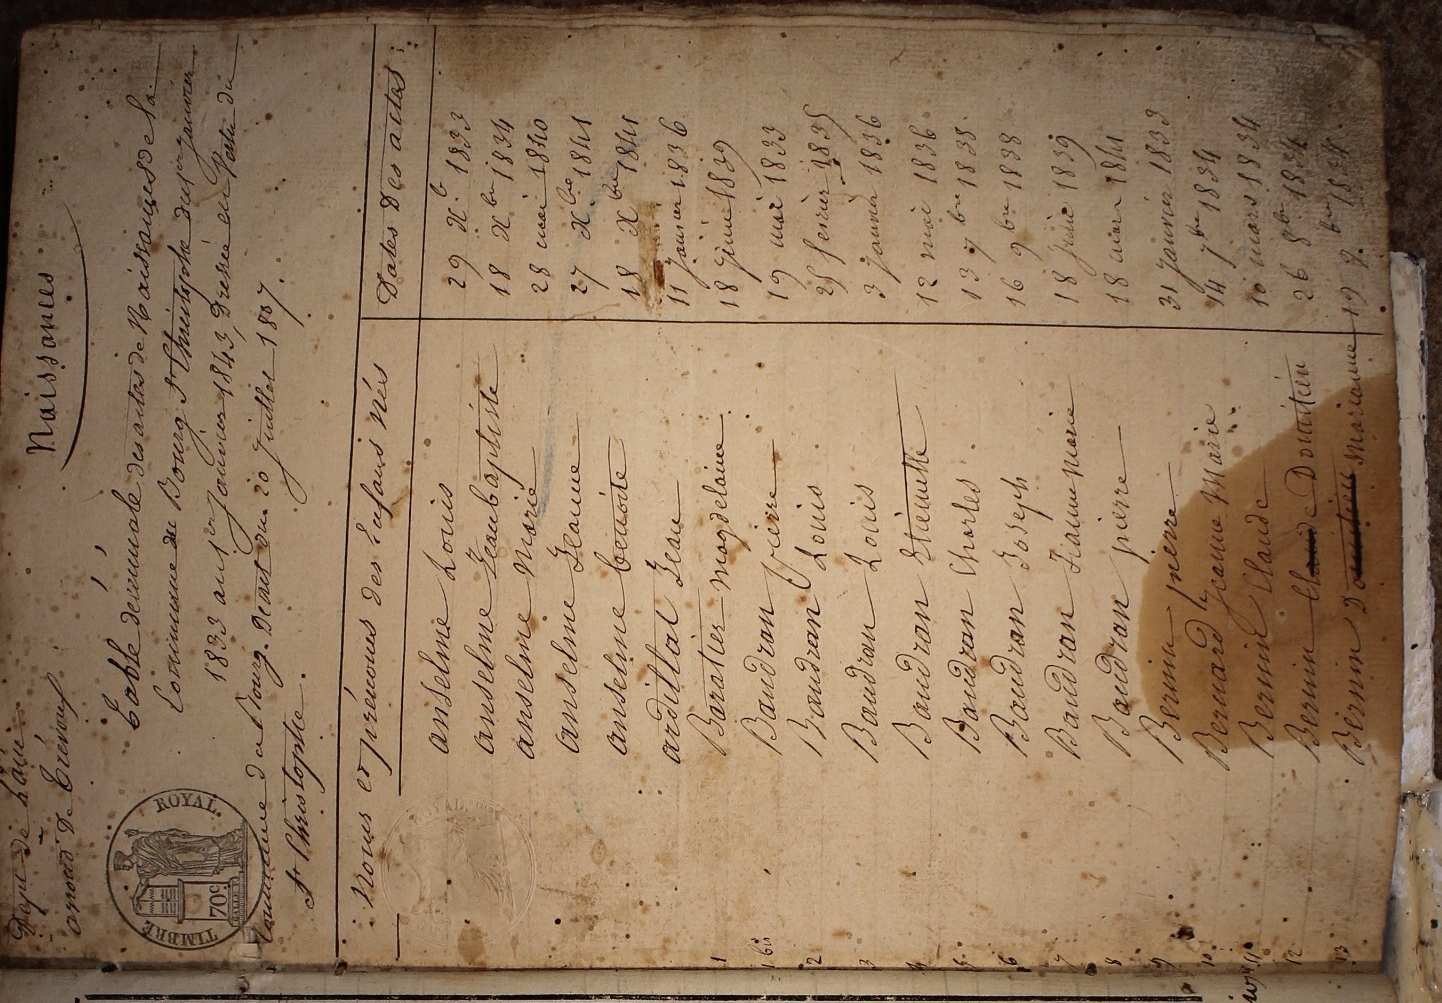 Dépt de l'ain
arrond.t De Trévoux
Naissances
Table décennale des actes de Naissances de la
Commune du Bourg St Christophe du 1er janvier
1833 au 1er Janvier 1843, Dressée en Vertu du
Décret du 20 Juillet 1807.
Commune de Bourg
St Christophe.
TIMBRE ROYAL
70c
Noms et prénoms des Enfans nés
Dates Des actes
anselme Louis 29 Xb 1833
anselme Jean baptiste 18 Xbre 1834
anselme Marie 28 mai 1840
anselme Jeanne 27 Xbre 1841
anselme benoite 18 Xbre 1841
ardillat Jean 11 Janvier 1836
1 Baratier Magdelaine 18 Juin 1839
1 bis Baudran Pierre 19 mai 1833
2 Baudran Louis 25 fevrier 1835
3 Baudran Louis 3 Janvier 1836
4 Baudran Etiennette 12 mai 1836
5 Baudran Charles 13 7bre 1838
6 Baudran Joseph 16 9bre 1838
7 Baudran Jeanne Marie 18 Juin 1839
8 Baudran pierre 18 mars 1841
9 Bernin pierre 31 Janvier 1833
10 Bernard Jeanne Marie 14 7bre 1834
11 Bernin Claude 10 mars 1834
12 Bernin Donatien 26 8bre 1834
13 Bernin Marianne 19 bre 1834